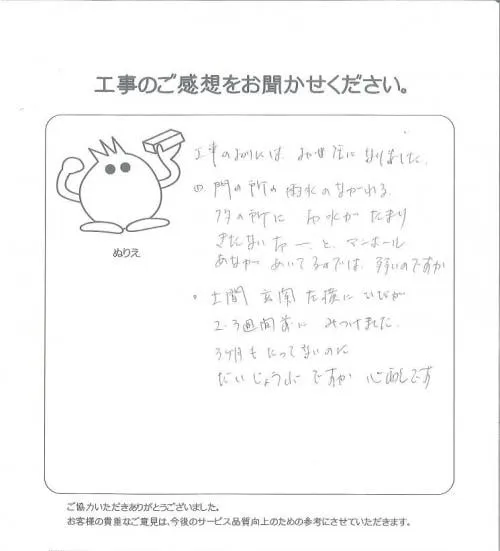 工事のご感想をお聞かせください。
工事の際には、お世話になりました。
門の所の雨水のながれる
フタの所に 雨水がたまり
きたないなーと、マンホール
あなが あいてるのでは、ないのですか
土間 玄関 左横に ひびが
2.3週間前に みつけました。
3ヶ月もたってないのに
だいじょうぶですか 心配です
ぬりえ
ご協力いただきありがとうございました。
お客様の貴重なご意見は、今後のサービス品質向上のための参考にさせていただきます。